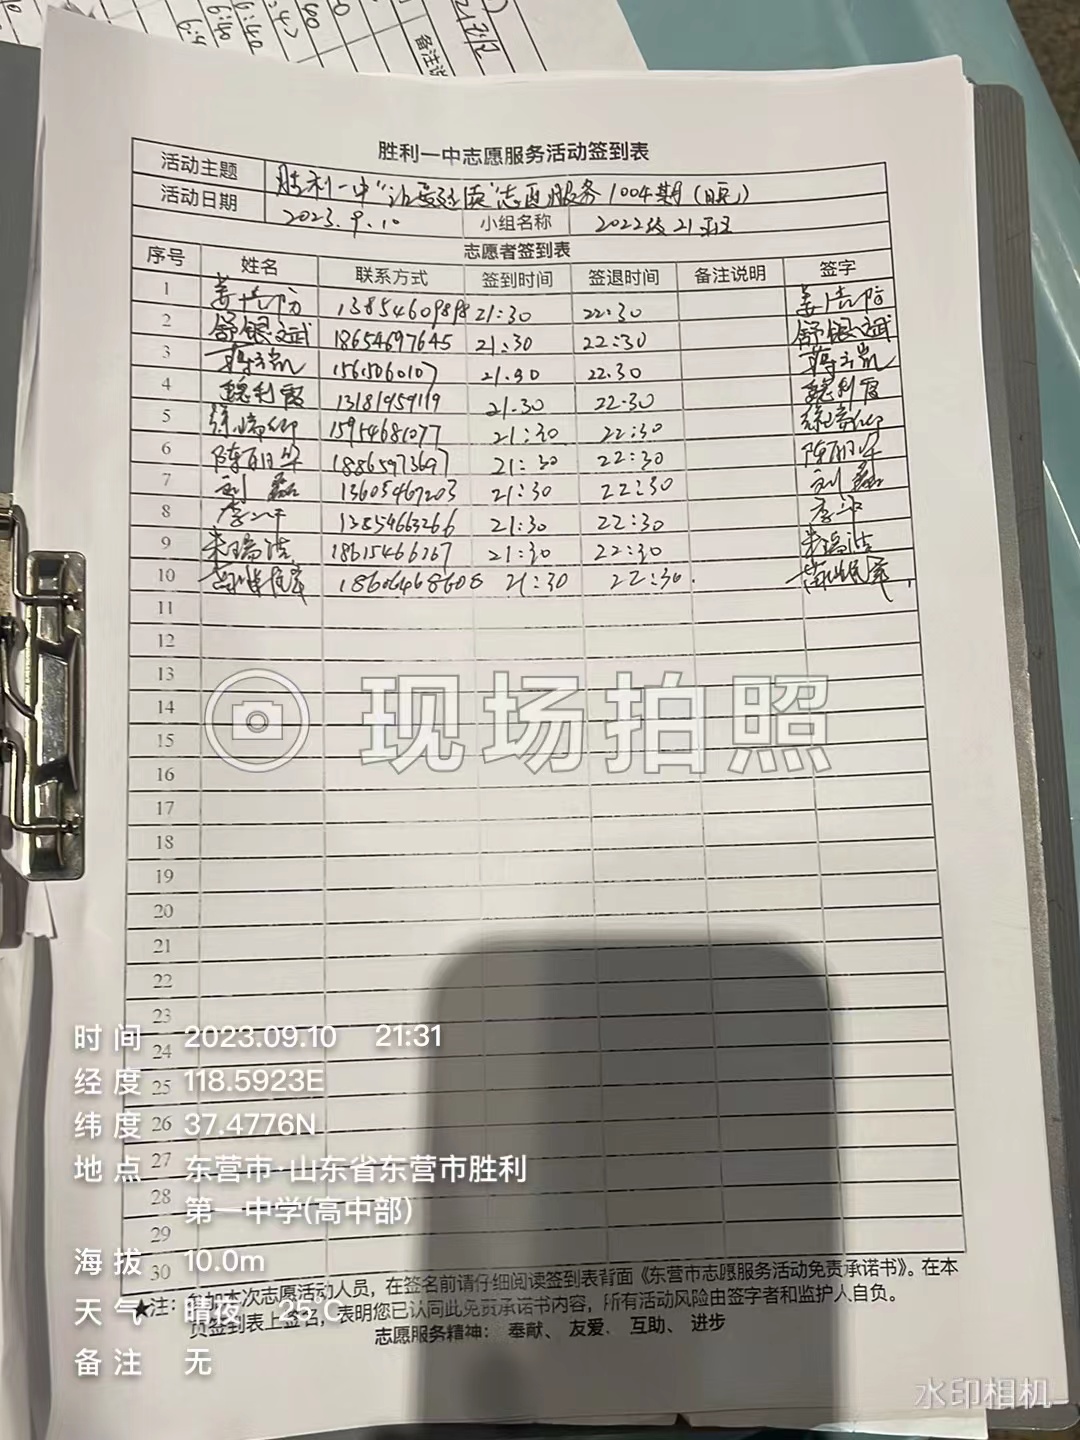 备注说
胜利一中志愿服务活动签到表
活动主题 胜利一中"让爱延续"志愿服务1004期(日志)
活动日期 2023.9.10 小组名称 2022级21班
志愿者签到表
序号 姓名 联系方式 签到时间 签退时间 备注说明 签字
1 13854609898 21:30 22:30
2 舒银斌 18654697645 21:30 22:30 舒银斌
3 蒋立凯 15615060107 21.30 22.30 蒋立凯
4 魏利霞 13181959119 21.30 22.30 魏利霞
5 15954681077 21:30 22:30
6 陈丽华 18865973697 21:30 22:30 陈丽华
7 刘磊 13605467203 21:30 22:30 刘磊
8 李平 13854663266 21:30 22:30 李平
9 朱瑞洁 18615466267 21:30 22:30 朱瑞洁
10 18606468608 21:30 22:30.
11
12
13
14
15
16
17
18
19
20
21
22
23
24
25
26
27
28
29
30
现场拍照
时间 2023.09.10 21:31
经度 118.5923E
纬度 37.4776N
地点 东营市·山东省东营市胜利
第一中学(高中部)
海拔 10.0m
天气 晴夜 25℃
备注 无
★注：参加本次志愿活动人员，在签名前请仔细阅读签到表背面《东营市志愿服务活动免责承诺书》。在本
页签到表上签名，表明您已认同此免责承诺书内容，所有活动风险由签字者和监护人自负。
志愿服务精神： 奉献、 友爱、 互助、 进步
水印相机